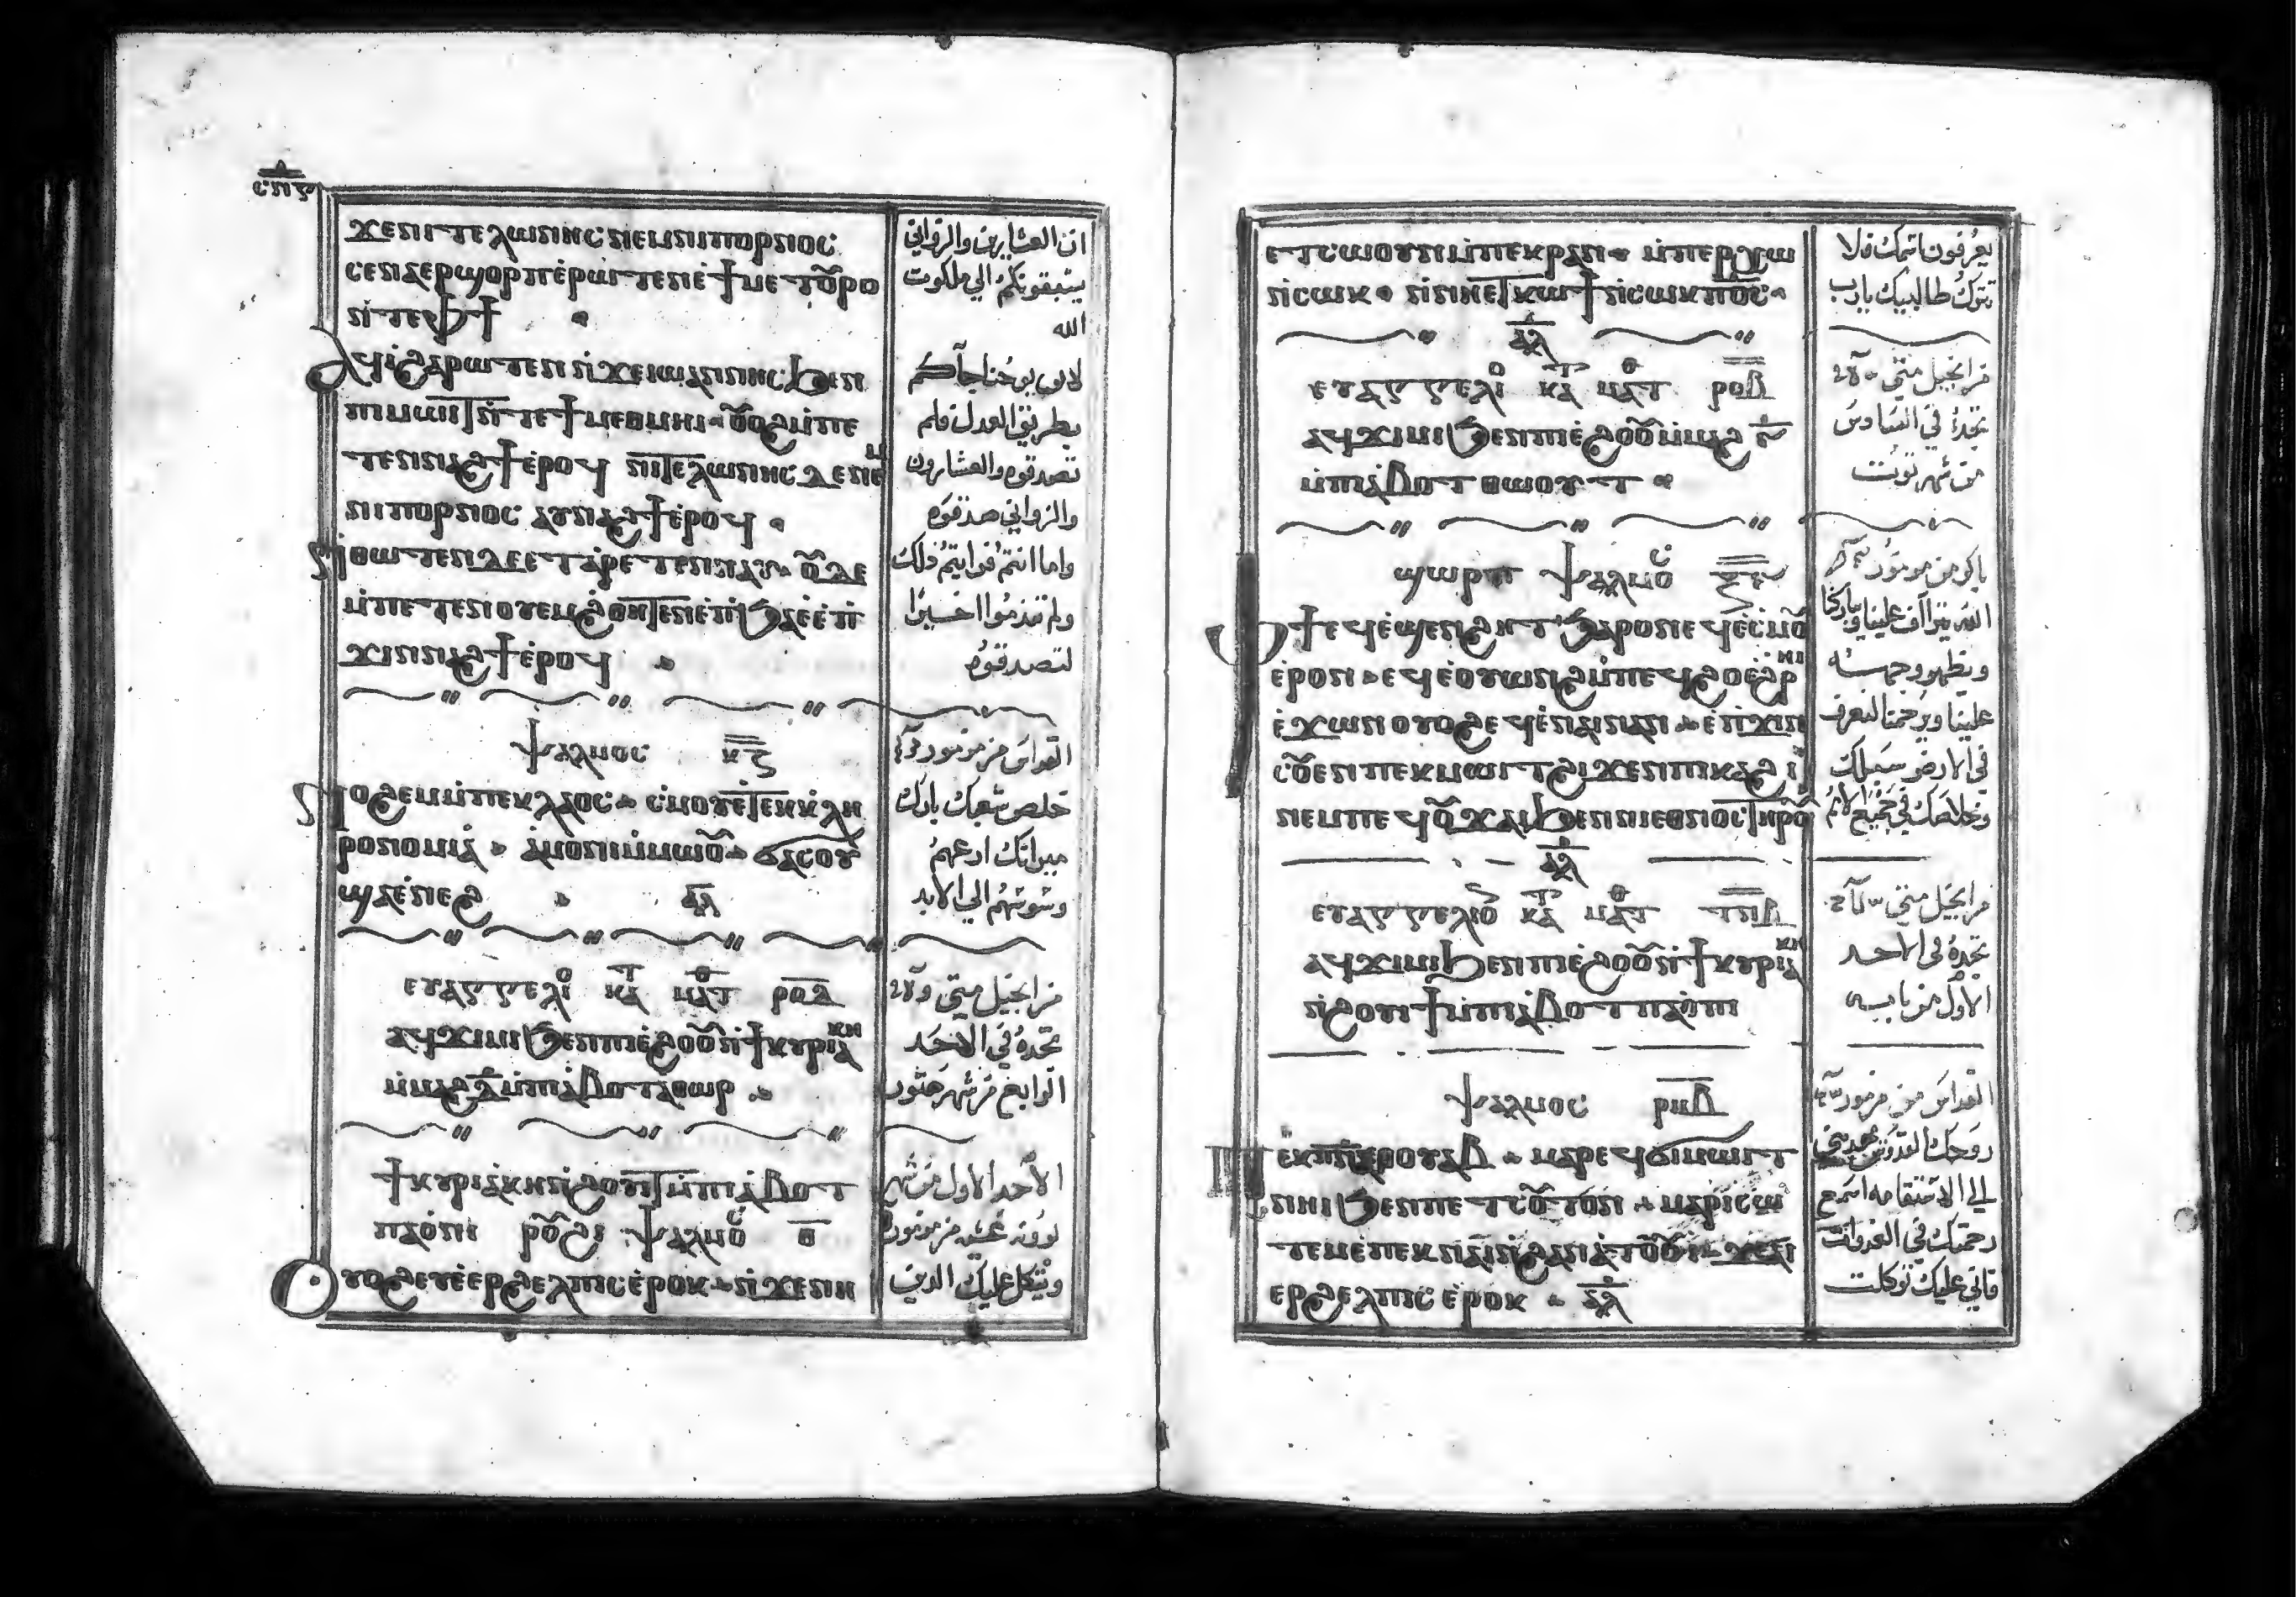 ϫⲉⲛⲓⲧⲉⲗⲱⲛⲏⲥ ⲛⲉⲙⲛⲓⲡⲟⲣⲛⲟⲥ
ⲥⲉⲛⲁⲉⲣϣⲟⲣⲡ ⲉ̀ⲣⲱⲧⲉⲛ ⲉ̀ϯⲙⲉⲧⲟⲩⲣⲟ
ⲛ̀ⲧⲉⲫϯ
ⲁϥⲓ̀ϩⲁⲣⲱⲧⲉⲛ ⲛ̀ϫⲉⲓⲱⲁⲛⲛⲏⲥ ϧⲉⲛ
ⲡⲓⲙⲱⲓⲧ ⲛ̀ⲧⲉϯⲙⲉⲑⲙⲏⲓ ⲟⲩⲟϩ ⲙ̀ⲡⲉ
ⲧⲉⲛⲛⲁϩϯ ⲉ̀ⲣⲟϥ ⲛⲓⲧⲉⲗⲱⲛⲏⲥ ⲇⲉ ⲛⲉⲙ
ⲛⲓⲡⲟⲣⲛⲟⲥ ⲁⲩⲛⲁϩϯ ⲉ̀ⲣⲟϥ
ⲛ̀ⲑⲱⲧⲉⲛ ⲇⲉ ⲉⲧⲁⲣⲉⲧⲉⲛⲛⲁⲩ ⲟⲩⲇⲉ
ⲙ̀ⲡⲉⲧⲉⲛⲟⲩⲉⲙϩ̀ⲑⲏⲧⲉⲛ ⲉ̀ⲡϧⲁⲉ̀ ⲉ̀ⲡ
ϫⲓⲛⲛⲁϩϯ ⲉ̀ⲣⲟϥ
ⲯⲁⲗⲙⲟⲥ ⲕⲍ
ⲛⲟϩⲉⲙ ⲙ̀ⲡⲉⲕⲗⲁⲟⲥ ⲥ̀ⲙⲟⲩ ⲉ̀ⲧⲉⲕⲕ̀ⲗⲏ
ⲣⲟⲛⲟⲙⲓⲁ̀ ⲁ̀ⲙⲟⲛⲓ ⲙ̀ⲙⲱⲟⲩ ϭⲁⲥⲟⲩ
ϣⲁⲉ̀ⲛⲉϩ ⲁⲗ
ⲉⲩⲁⲅⲅⲉⲗⲓⲟ ⲕⲁⲧ ⲙⲁⲧⲑ ⲣⲟⲇ
ⲁϥϫⲓⲙⲓ ϧⲉⲛⲡⲓⲉ̀ϩⲟⲟⲩ ⲛ̀ϯⲕⲩⲣⲓⲁⲕⲏ
ⲙ̀ⲙⲁϩⲇ ⲙ̀ⲡⲓⲁ̀ⲃⲟⲧ ⲁⲑⲱⲣ
ϯⲕⲩⲣⲓⲁⲕⲏ ⲛ̀ϩⲟⲩⲓϯ ⲙ̀ⲡⲓⲁ̀ⲃⲟⲧ
ⲡⲁⲟ̀ⲛⲓ ⲣⲟⲩϩⲓ ⲯⲁⲗⲙⲟⲥ ⲑ
ⲟⲩⲟϩ ⲉⲩⲉ̀ⲉⲣϩⲉⲗⲡⲓⲥ ⲉ̀ⲣⲟⲕ ⲛ̀ϫⲉⲛⲏ
ان العشارين والزواني
يسبقونكم الي ملكوت
الله
لان يوحنا جآكم
بطريق العدل فلم
تصدقوه والعشارون
والزواني صدقوه
واما انتم فرايتم ذلك
ولم تندموا اخيرًا
لتصدقوه
القداس من مزمور
خلص شعبك بارك
ميراثك ارعهم
الي الابد
من انجيل متي
تجده في الاحد
الرابع من شهر هتور
الاحد الاول من شهر
بوونه عشيه من مزمور
ويتكل عليك الذين
ⲉⲧⲥⲱⲟⲩⲛ ⲙ̀ⲡⲉⲕⲣⲁⲛ ⲙ̀ⲡⲉⲣⲭⲱ
ⲛ̀ⲥⲱⲕ ⲛ̀ⲛⲏⲉⲧⲕⲱϯ ⲛ̀ⲥⲱⲕ ⲡⲟⲥ
ⲁⲗ
ⲉⲩⲁⲅⲅⲉⲗⲓⲟ ⲕⲁⲧ ⲙⲁⲧⲑ ⲣⲟⲃ
ⲁϥϫⲓⲙⲓ ϧⲉⲛⲡⲓⲉ̀ϩⲟⲟⲩ ⲙ̀ⲙⲁϩ ⲋ
ⲙ̀ⲡⲓⲁ̀ⲃⲟⲧ ⲑⲱⲟⲩⲧ
ϣⲱⲣⲡ ⲯⲁⲗⲙⲟⲥ ⲝⲋ
ⲫϯ ⲉϥⲉ̀ϣⲉⲛϩⲏⲧ ϧⲁⲣⲟⲛ ⲉϥⲉ̀ⲥ̀ⲙⲟⲩ
ⲉ̀ⲣⲟⲛ ⲉϥⲉ̀ⲟⲩⲱⲛϩ ⲙ̀ⲡⲉϥϩⲟ ⲉ̀ϩⲣⲏⲓ
ⲉ̀ϫⲱⲛ ⲟⲩⲟϩ ⲉϥⲉ̀ⲛⲁⲓ ⲛⲁⲛ ⲉ̀ⲡϫⲓⲛ
ⲥⲟⲩⲉⲛ ⲡⲉⲕⲙⲱⲓⲧ ϩⲓϫⲉⲛ ⲡⲓⲕⲁϩⲓ
ⲛⲉⲙ ⲡⲉϥⲟⲩϫⲁⲓ ϧⲉⲛ ⲛⲓⲉⲑⲛⲟⲥ ⲧⲏⲣⲟⲩ
ⲁⲗ
ⲉⲩⲁⲅⲅⲉⲗⲓⲟ ⲕⲁⲧ ⲙⲁⲧⲑ ⲧⲡⲃ
ⲁϥϫⲓⲙⲓ ϧⲉⲛⲡⲓⲉ̀ϩⲟⲟⲩ ⲛ̀ϯⲕⲩⲣⲓⲁⲕⲏ
ⲛ̀ϩⲟⲩⲓϯ ⲙ̀ⲡⲓⲁ̀ⲃⲟⲧ ⲡⲁⲟ̀ⲡⲓ
ⲯⲁⲗⲙⲟⲥ ⲣⲙⲃ
ⲡⲉⲕⲡⲛⲁ ⲉⲑⲟⲩⲁⲃ ⲙⲁⲣⲉϥϭⲓⲙⲱⲓⲧ
ⲛⲏⲓ ϧⲉⲛ ⲡⲉⲧⲥⲟⲩⲧⲱⲛ ⲙⲁⲣⲓⲥⲱ
ⲧⲉⲙ ⲉ̀ⲡⲉⲕⲛⲁⲓ ⲛ̀ϩⲁⲛⲁ̀ⲧⲟⲟⲩⲓ ϫⲉⲁⲓ
ⲉⲣϩⲉⲗⲡⲓⲥ ⲉ̀ⲣⲟⲕ ⲁⲗ
يعرفون اسمك فلا
تترك طالبيك يا رب
من انجيل متي
تجده في السادس
من شهر توت
باكر من مزمور
الله يتراف علينا ويباركنا
ويظهر وجهه
علينا ويرحمنا لنعرف
في الارض سبيلك
وخلاصك في جميع الامم
من انجيل متي
تجده في الاحد
الاول من بابه
القداس من مزمور
روحك القدوس يهديني
الي الاستقامه اسمع
رحمتك في الغدوات
فاني عليك توكلت